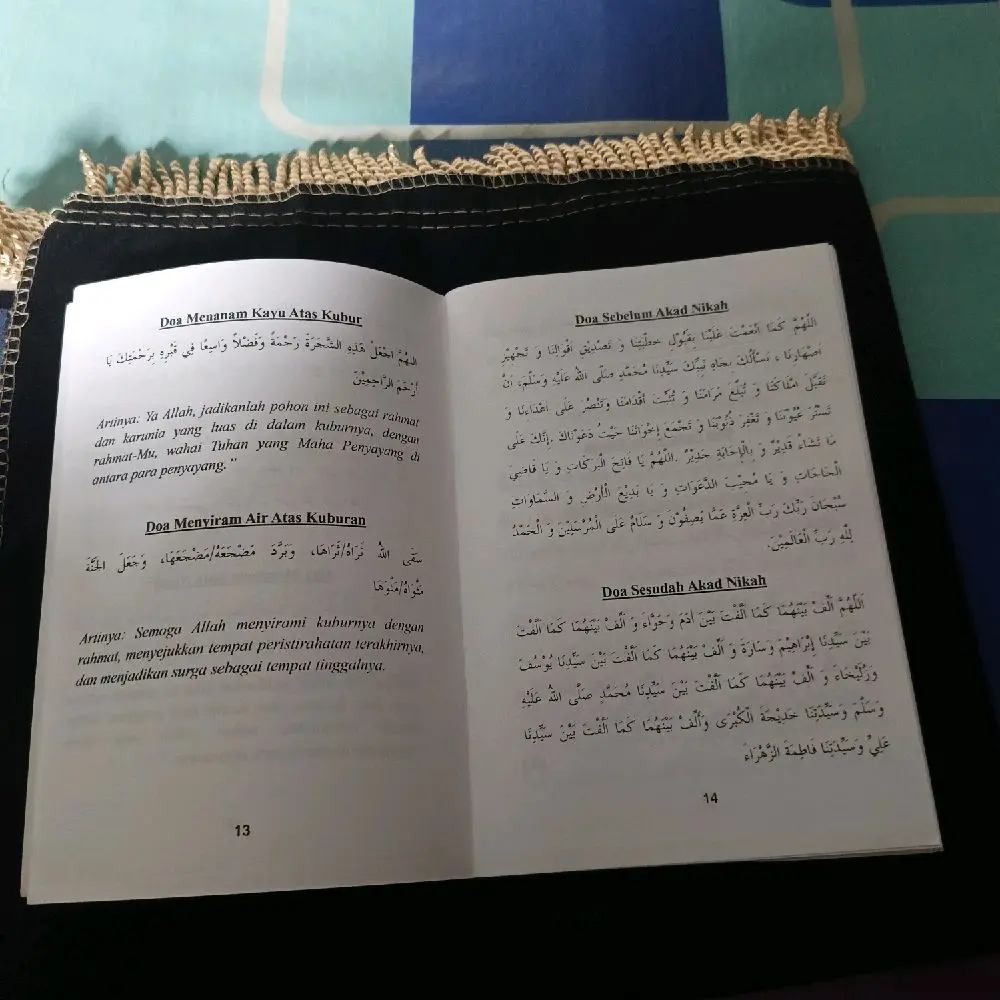 Doa Menanam Kayu Atas Kubur
اللهُمَّ اجْعَلْ هَذِهِ الشَّجَرَةَ رَحْمَةً وَفَضْلاً وَاسِعًا فِي قَبْرِهِ بِرَحْمَتِكَ يَا
أَرْحَمَ الرَّاحِمِيْنَ
Artinya: Ya Allah, jadikanlah pohon ini sebagai rahmat
dan karunia yang luas di dalam kuburnya, dengan
rahmat-Mu, wahai Tuhan yang Maha Penyayang di
antara para penyayang."
Doa Menyiram Air Atas Kuburan
سَقَى اللهُ ثَرَاهُ/ثَرَاهَا، وَبَرَّدَ مَضْجَعَهُ/مَضْجَعَهَا، وَجَعَلَ الجَنَّةَ
مَثْوَاهُ/مَثْوَهَا
Artinya: Semoga Allah menyirami kuburnya dengan
rahmat, menyejukkan tempat peristirahatan terakhirnya,
dan menjadikan surga sebagai tempat tinggalnya.
13
Doa Sebelum Akad Nikah
اللَّهُمَّ كَمَا أَنْعَمْتَ عَلَيْنَا بِقَبُوْلِ خِطْبَتِنَا وَ تَصْدِيْقِ اَقْوَالِنَا وَ تَجْهِيْزِ
اَصْهَارِنَا ، نَسْأَلُكَ بِجَاهِ نَبِيِّكَ سَيِّدِنَا مُحَمَّدٍ صَلَّى اللهُ عَلَيْهِ وَسَلَّمَ، اَنْ
تَقَبَّلَ امْلَاكَنَا وَ تُبَلِّغَ مَرَامَنَا وَ تُثَبِّتَ اَقْدَامَنَا وَتَنْصُرَ عَلَى اَعْدَاءِنَا وَ
تَسْتُرَ عُيُوْبَنَا وَ تَغْفِرَ ذُنُوْبَنَا وَ تَجْمَعَ إِخْوَانَنَا حَيْثُ دَعَوْنَاكَ .إِنَّكَ عَلَى
مَا تَشَاءُ قَدِيْرٌ وَ بِالْإِجَابَةِ جَدِيْرٌ .اللَّهُمَّ يَا فَاتِحَ الْبَرَكَاتِ وَ يَا قَاضِيَ
الْحَاجَاتِ وَ يَا مُجِيْبَ الدَّعَوَاتِ وَ يَا بَدِيْعَ الْأَرْضِ وَ السَّمَاوَاتِ
سُبْحَانَ رَبِّكَ رَبِّ الْعِزَّةِ عَمَّا يَصِفُوْنَ وَ سَلَامٌ عَلَى الْمُرْسَلِيْنَ وَ الْحَمْدُ
لِلّٰهِ رَبِّ الْعَالَمِيْنَ.
Doa Sesudah Akad Nikah
اَللّٰهُمَّ اَلِّفْ بَيْنَهُمَا كَمَا اَلَّفْتَ بَيْنَ اٰدَمَ وَحَوَّاءَ وَ اَلِّفْ بَيْنَهُمَا كَمَا اَلَّفْتَ
بَيْنَ سَيِّدِنَا إِبْرَاهِيْمَ وَسَارَةَ وَ اَلِّفْ بَيْنَهُمَا كَمَا اَلَّفْتَ بَيْنَ سَيِّدِنَا يُوْسُفَ
وَزُلَيْخَاءَ وَ اَلِّفْ بَيْنَهُمَا كَمَا اَلَّفْتَ بَيْنَ سَيِّدِنَا مُحَمَّدٍ صَلَّى اللهُ عَلَيْهِ
وَسَلَّمَ وَسَيِّدَتِنَا خَدِيْجَةَ الْكُبْرَى وَأَلِّفْ بَيْنَهُمَا كَمَا اَلَّفْتَ بَيْنَ سَيِّدِنَا
عَلِيٍّ وَسَيِّدَتِنَا فَاطِمَةَ الزَّهْرَاءَ
14